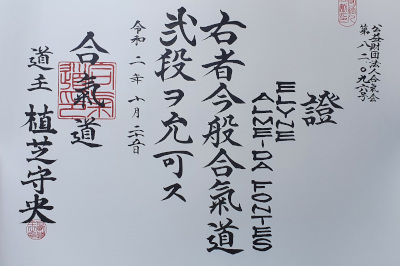 公益財団法人合気会
第八二〇九六号
證
ELYNE
ALMEIDA FONTES
右者今般合氣道
弐段ヲ允可ス
令和二年十月二五日
合氣道
道主 植芝守央